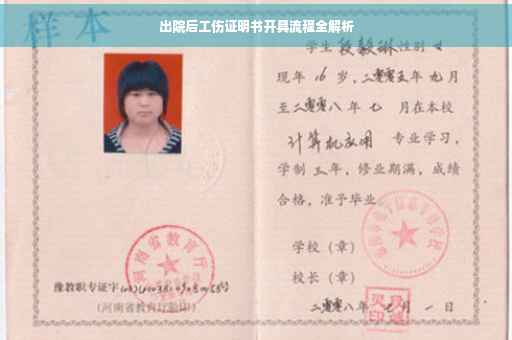 出院后工伤证明书开具流程全解析
样本
学生段毅琳性别女
现年16岁，二零零五年九月
至二零零八年七月在本校
计算机应用 专业学习，
学制三年，修业期满，成绩
合格，准予毕业
学校（章）
校长（章）
二零零八年七月一日
河南省教育厅
豫教职专证字
（河南省教育厅验印）